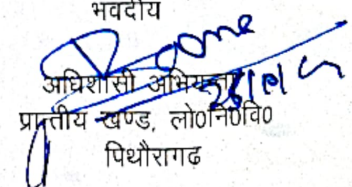 भवदीय
अधिशासी अभियन्ता
प्रान्तीय खण्ड, लो०नि०वि०
पिथौरागढ़